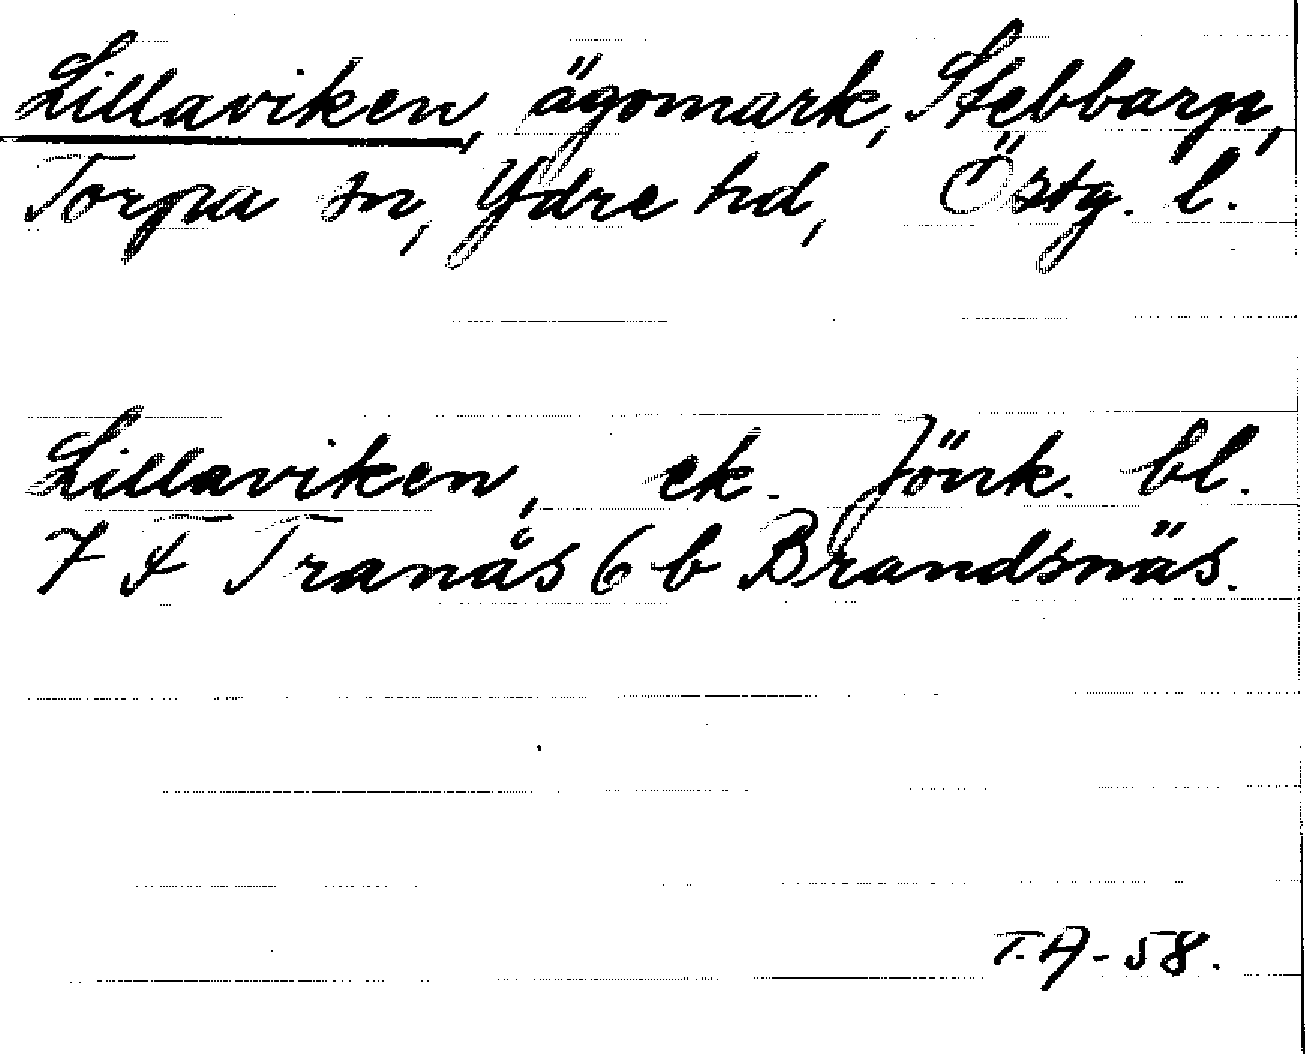 Lillaviken, ägomark, Stebbarp,
Torpa sn, Ydre hd, Östg. l.
Lillaviken, ek. Jönk. bl.
7 F Tranås 6 b Brandsnäs.
T.A-58.